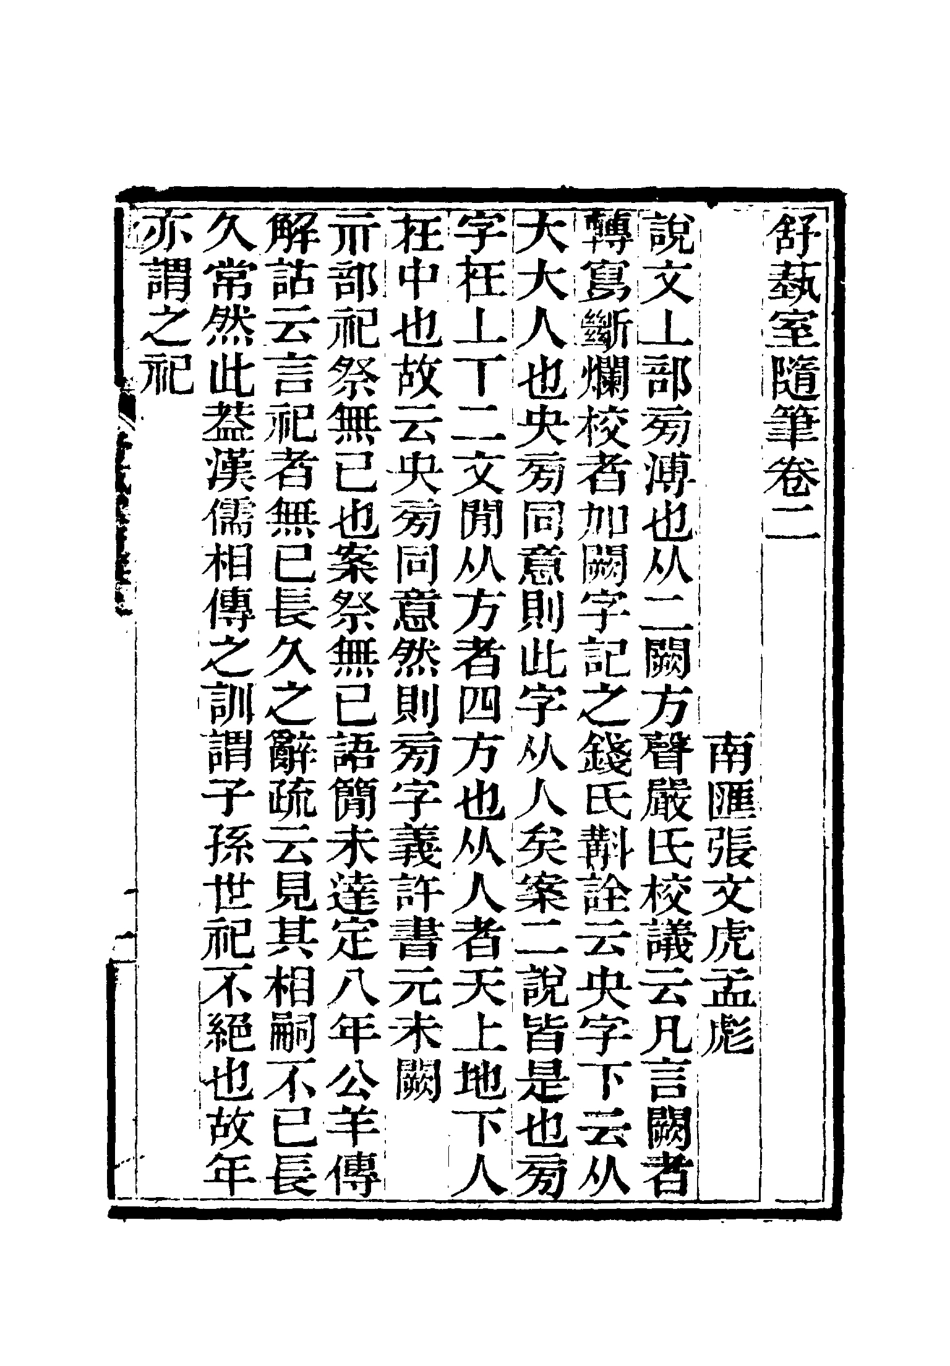 舒蓺室隨筆卷二
南匯張文虎孟彪
說文丄部㫄溥也从二闕方聲嚴氏校議云凡言闕者
轉寫斷爛校者加闕字記之錢氏斠詮云央字下云从
大大人也央㫄同意則此字从人矣案二說皆是也㫄
字在丄丅二文閒从方者四方也从人者天上地下人
在中也故云央㫄同意然則㫄字義許書元未闕
示部祀祭無已也案祭無已語簡未達定八年公羊傳
解詁云言祀者無已長久之辭疏云見其相嗣不已長
久常然此葢漢儒相傳之訓謂子孫世祀不絕也故年
亦謂之祀